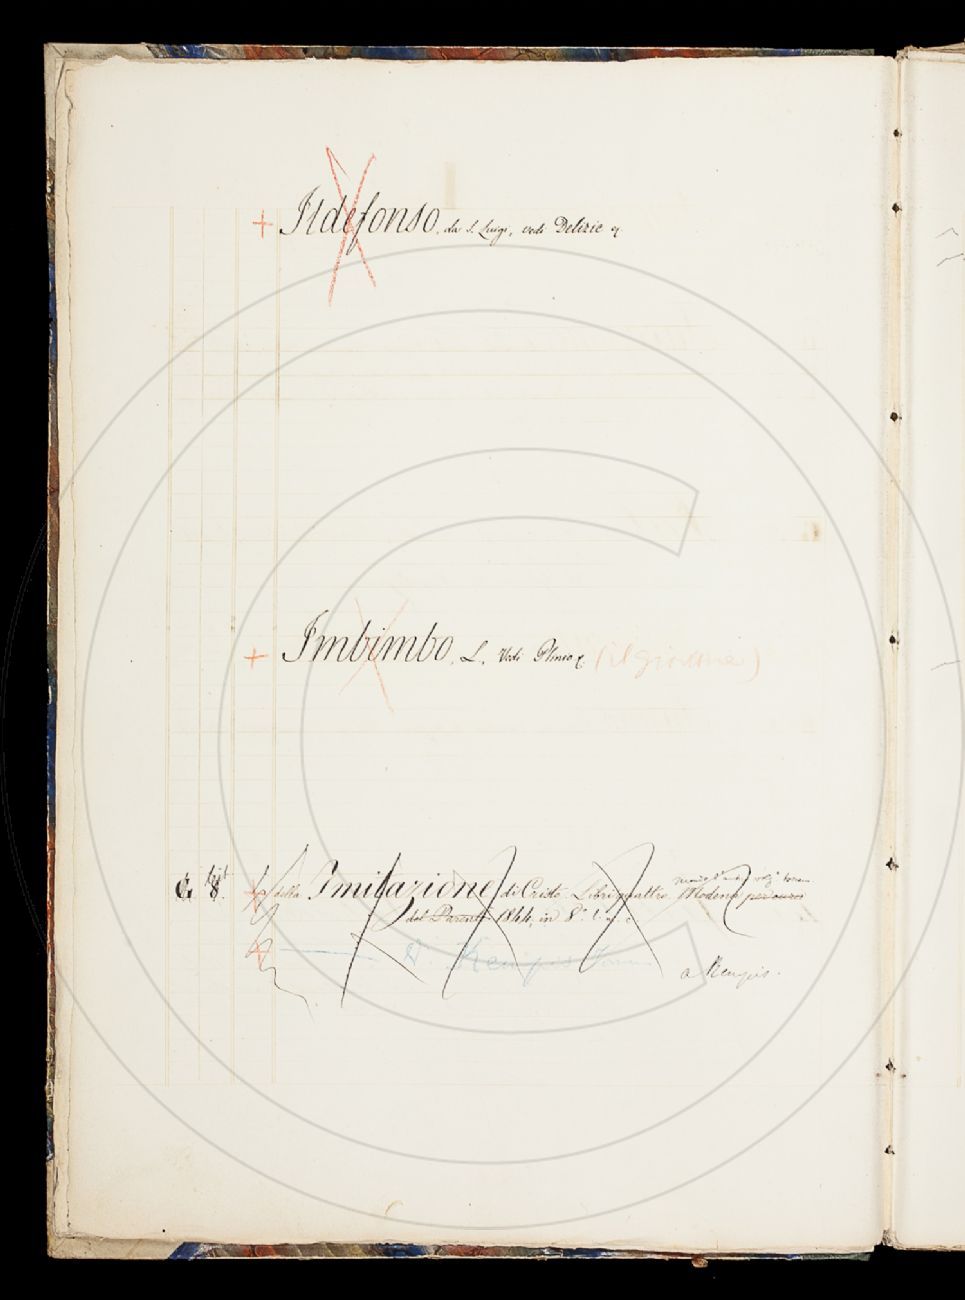 + Ildefonso, da S. Luigi, vedi Delizie
+ Imbimbo, L. Vedi Plinio (il giovane)
G 8. + della Imitazione di Cristo Libri quattro. Modena
dal Parenti 1844, in 8.°
+ D. Kempis Tom
a Kempis.